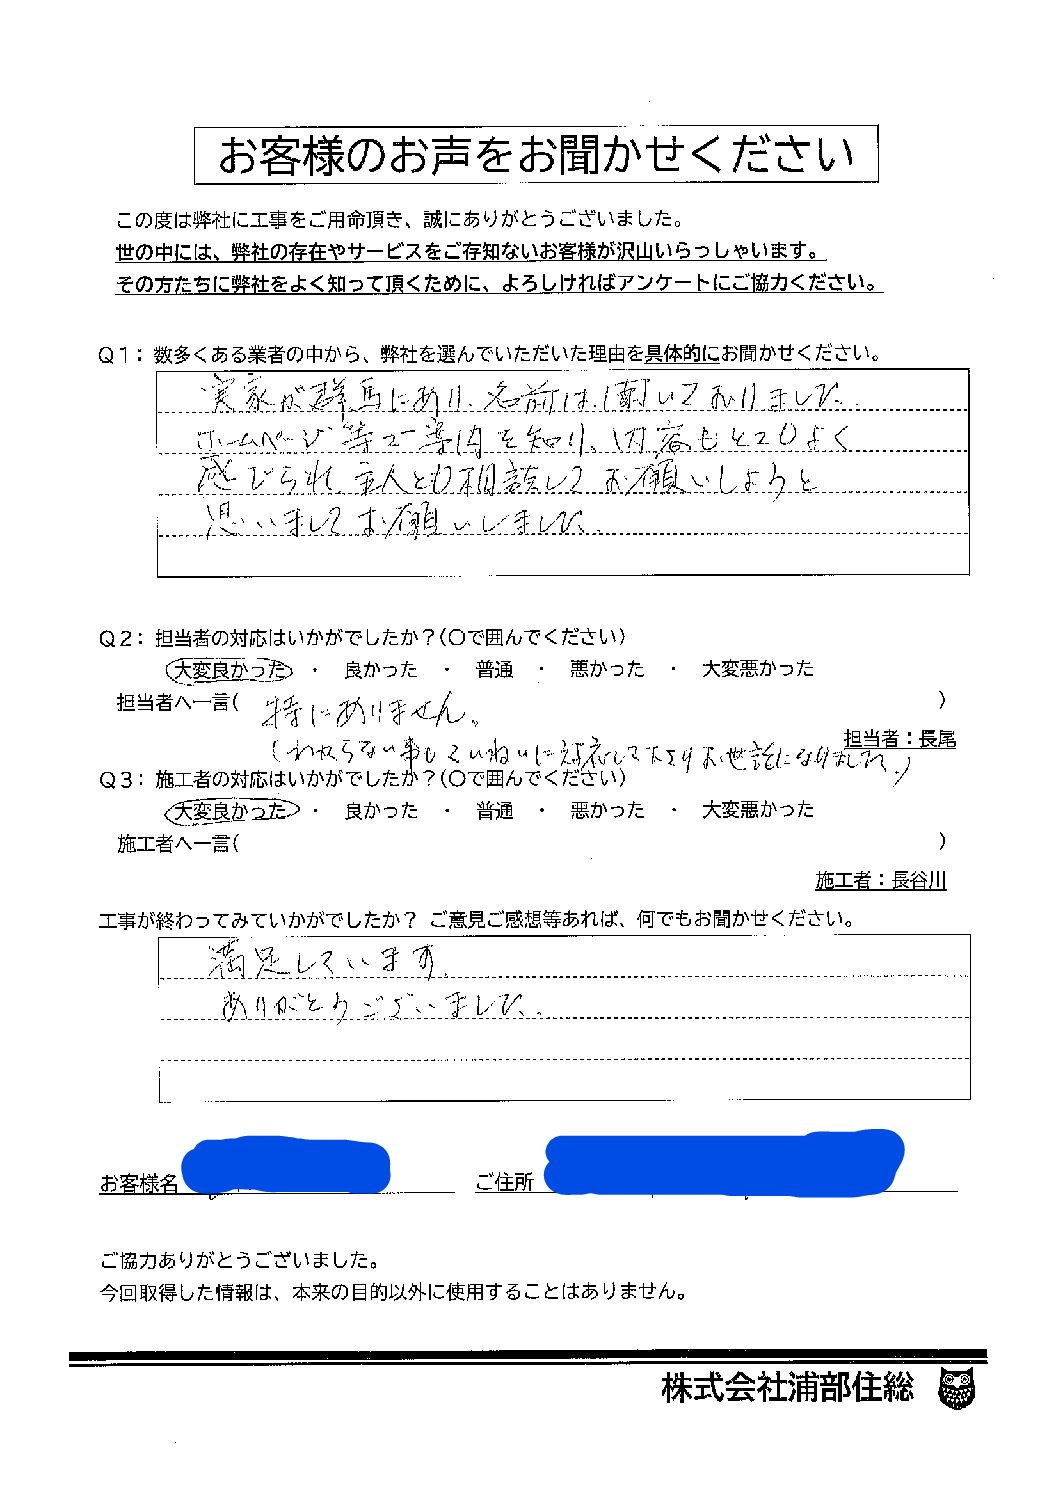 お客様のお声をお聞かせください
この度は弊社に工事をご用命頂き、誠にありがとうございました。
世の中には、弊社の存在やサービスをご存知ないお客様が沢山いらっしゃいます。
その方たちに弊社をよく知って頂くために、よろしければアンケートにご協力ください。
Q1：数多くある業者の中から、弊社を選んでいただいた理由を具体的にお聞かせください。
実家が群馬にあり、名前は聞いておりました。
ホームページ等で案内を知り、内容もとてもよく
感じられ、主人とも相談してお願いしようと
思いましてお願いしました。
Q2：担当者の対応はいかがでしたか？（〇で囲んでください）
大変良かった ・ 良かった ・ 普通 ・ 悪かった ・ 大変悪かった
担当者へ一言( 特にありません。 )
担当者：長尾
(わからない事もていねいに対応して下さりお世話になりました。)
Q3：施工者の対応はいかがでしたか？（〇で囲んでください）
大変良かった ・ 良かった ・ 普通 ・ 悪かった ・ 大変悪かった
施工者へ一言( )
施工者：長谷川
工事が終わってみていかがでしたか？ ご意見ご感想等あれば、何でもお聞かせください。
満足しています。
ありがとうございました。
お客様名 ご住所
ご協力ありがとうございました。
今回取得した情報は、本来の目的以外に使用することはありません。
株式会社浦部住総